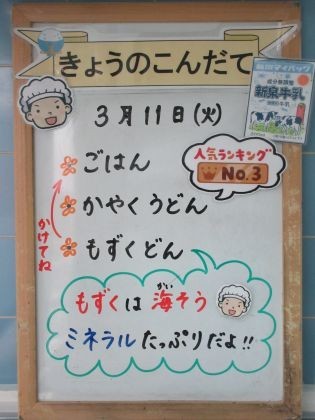 きょうのこんだて
3月11日(火)
ごはん
人気ランキング
No.3
かやくうどん
もずくどん
かけてね
もずくは海そう
がい
ミネラルたっぷりだよ!!